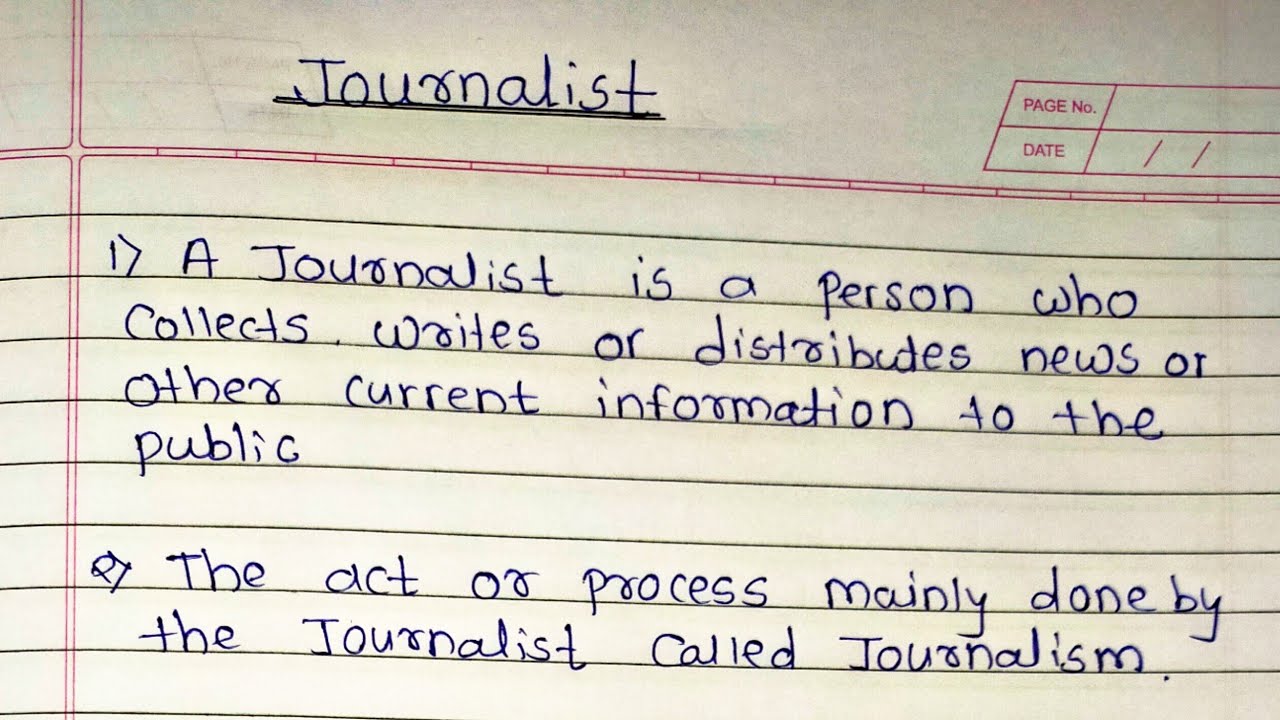 Journalist
PAGE No.
DATE / /
1) A Journalist is a person who
collects, writes or distributes news or
other current information to the
public
2) The act or process mainly done by
the Journalist called Journalism.